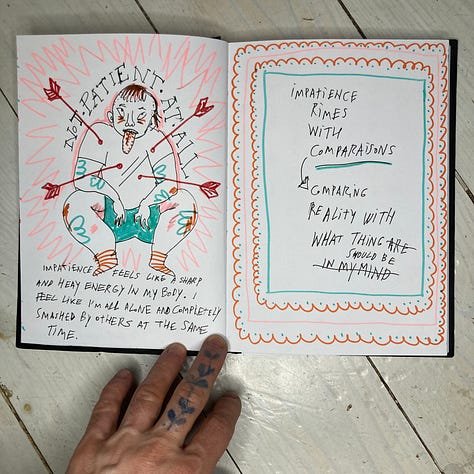 NOT. PATIENT. AT ALL
IMPATIENCE FEELS LIKE A SHARP
AND HEAY ENERGY IN MY BODY. I
FEEL LIKE I'M ALL ALONE AND COMPLETELY
SMASHED BY OTHERS AT THE SAME
TIME.
IMPATIENCE
RIMES
WITH
COMPARAISONS
COMPARING
REALITY WITH
WHAT THING ARE
SHOULD BE
IN MY MIND